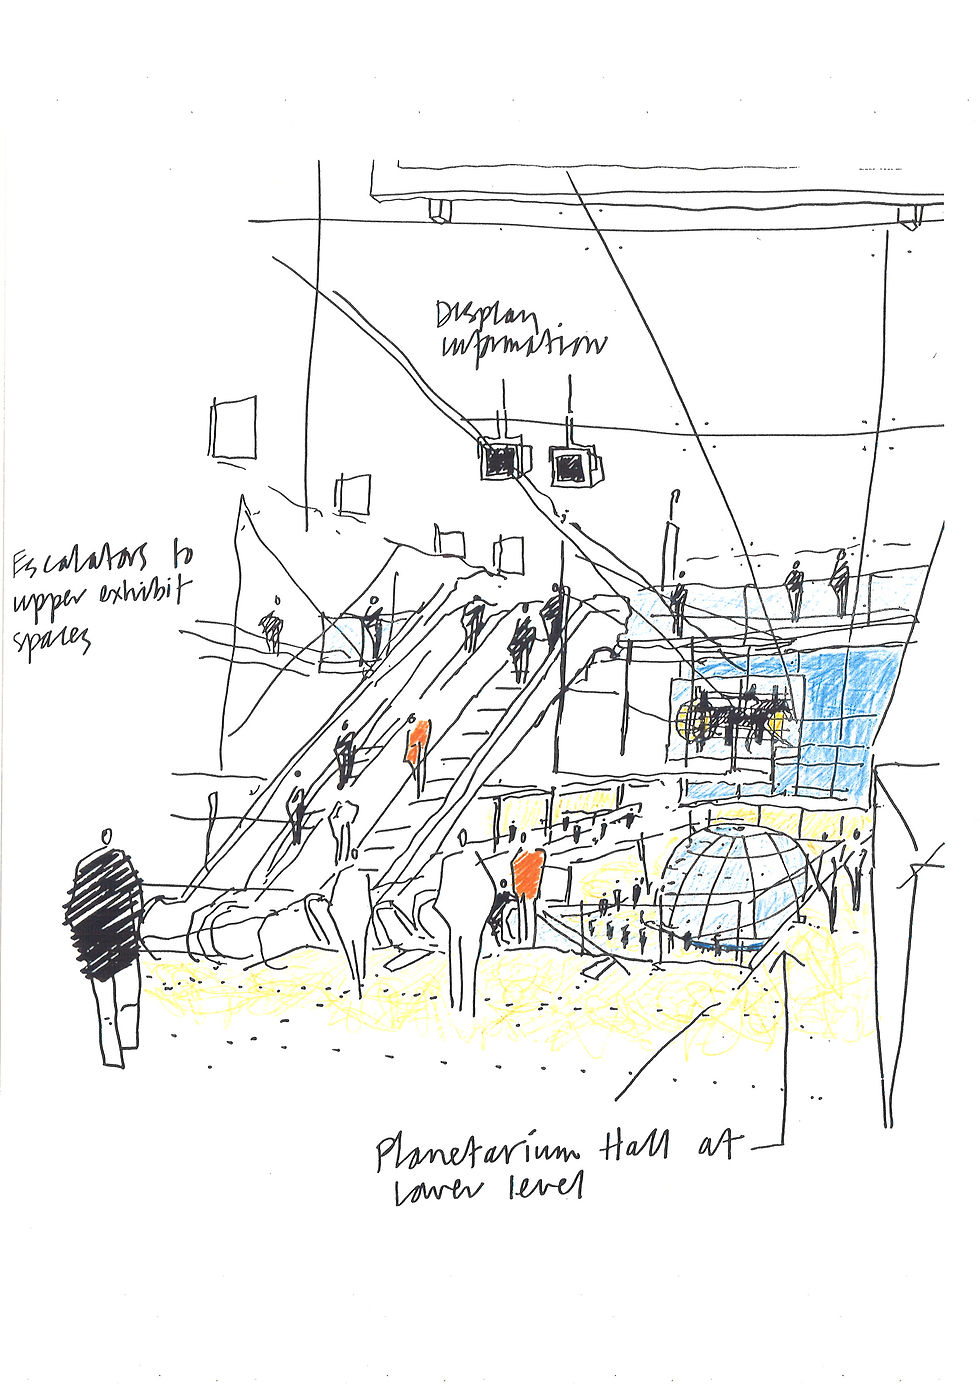 Display
information
Escalators to
upper exhibit
spaces
Planetarium Hall at
Lower level